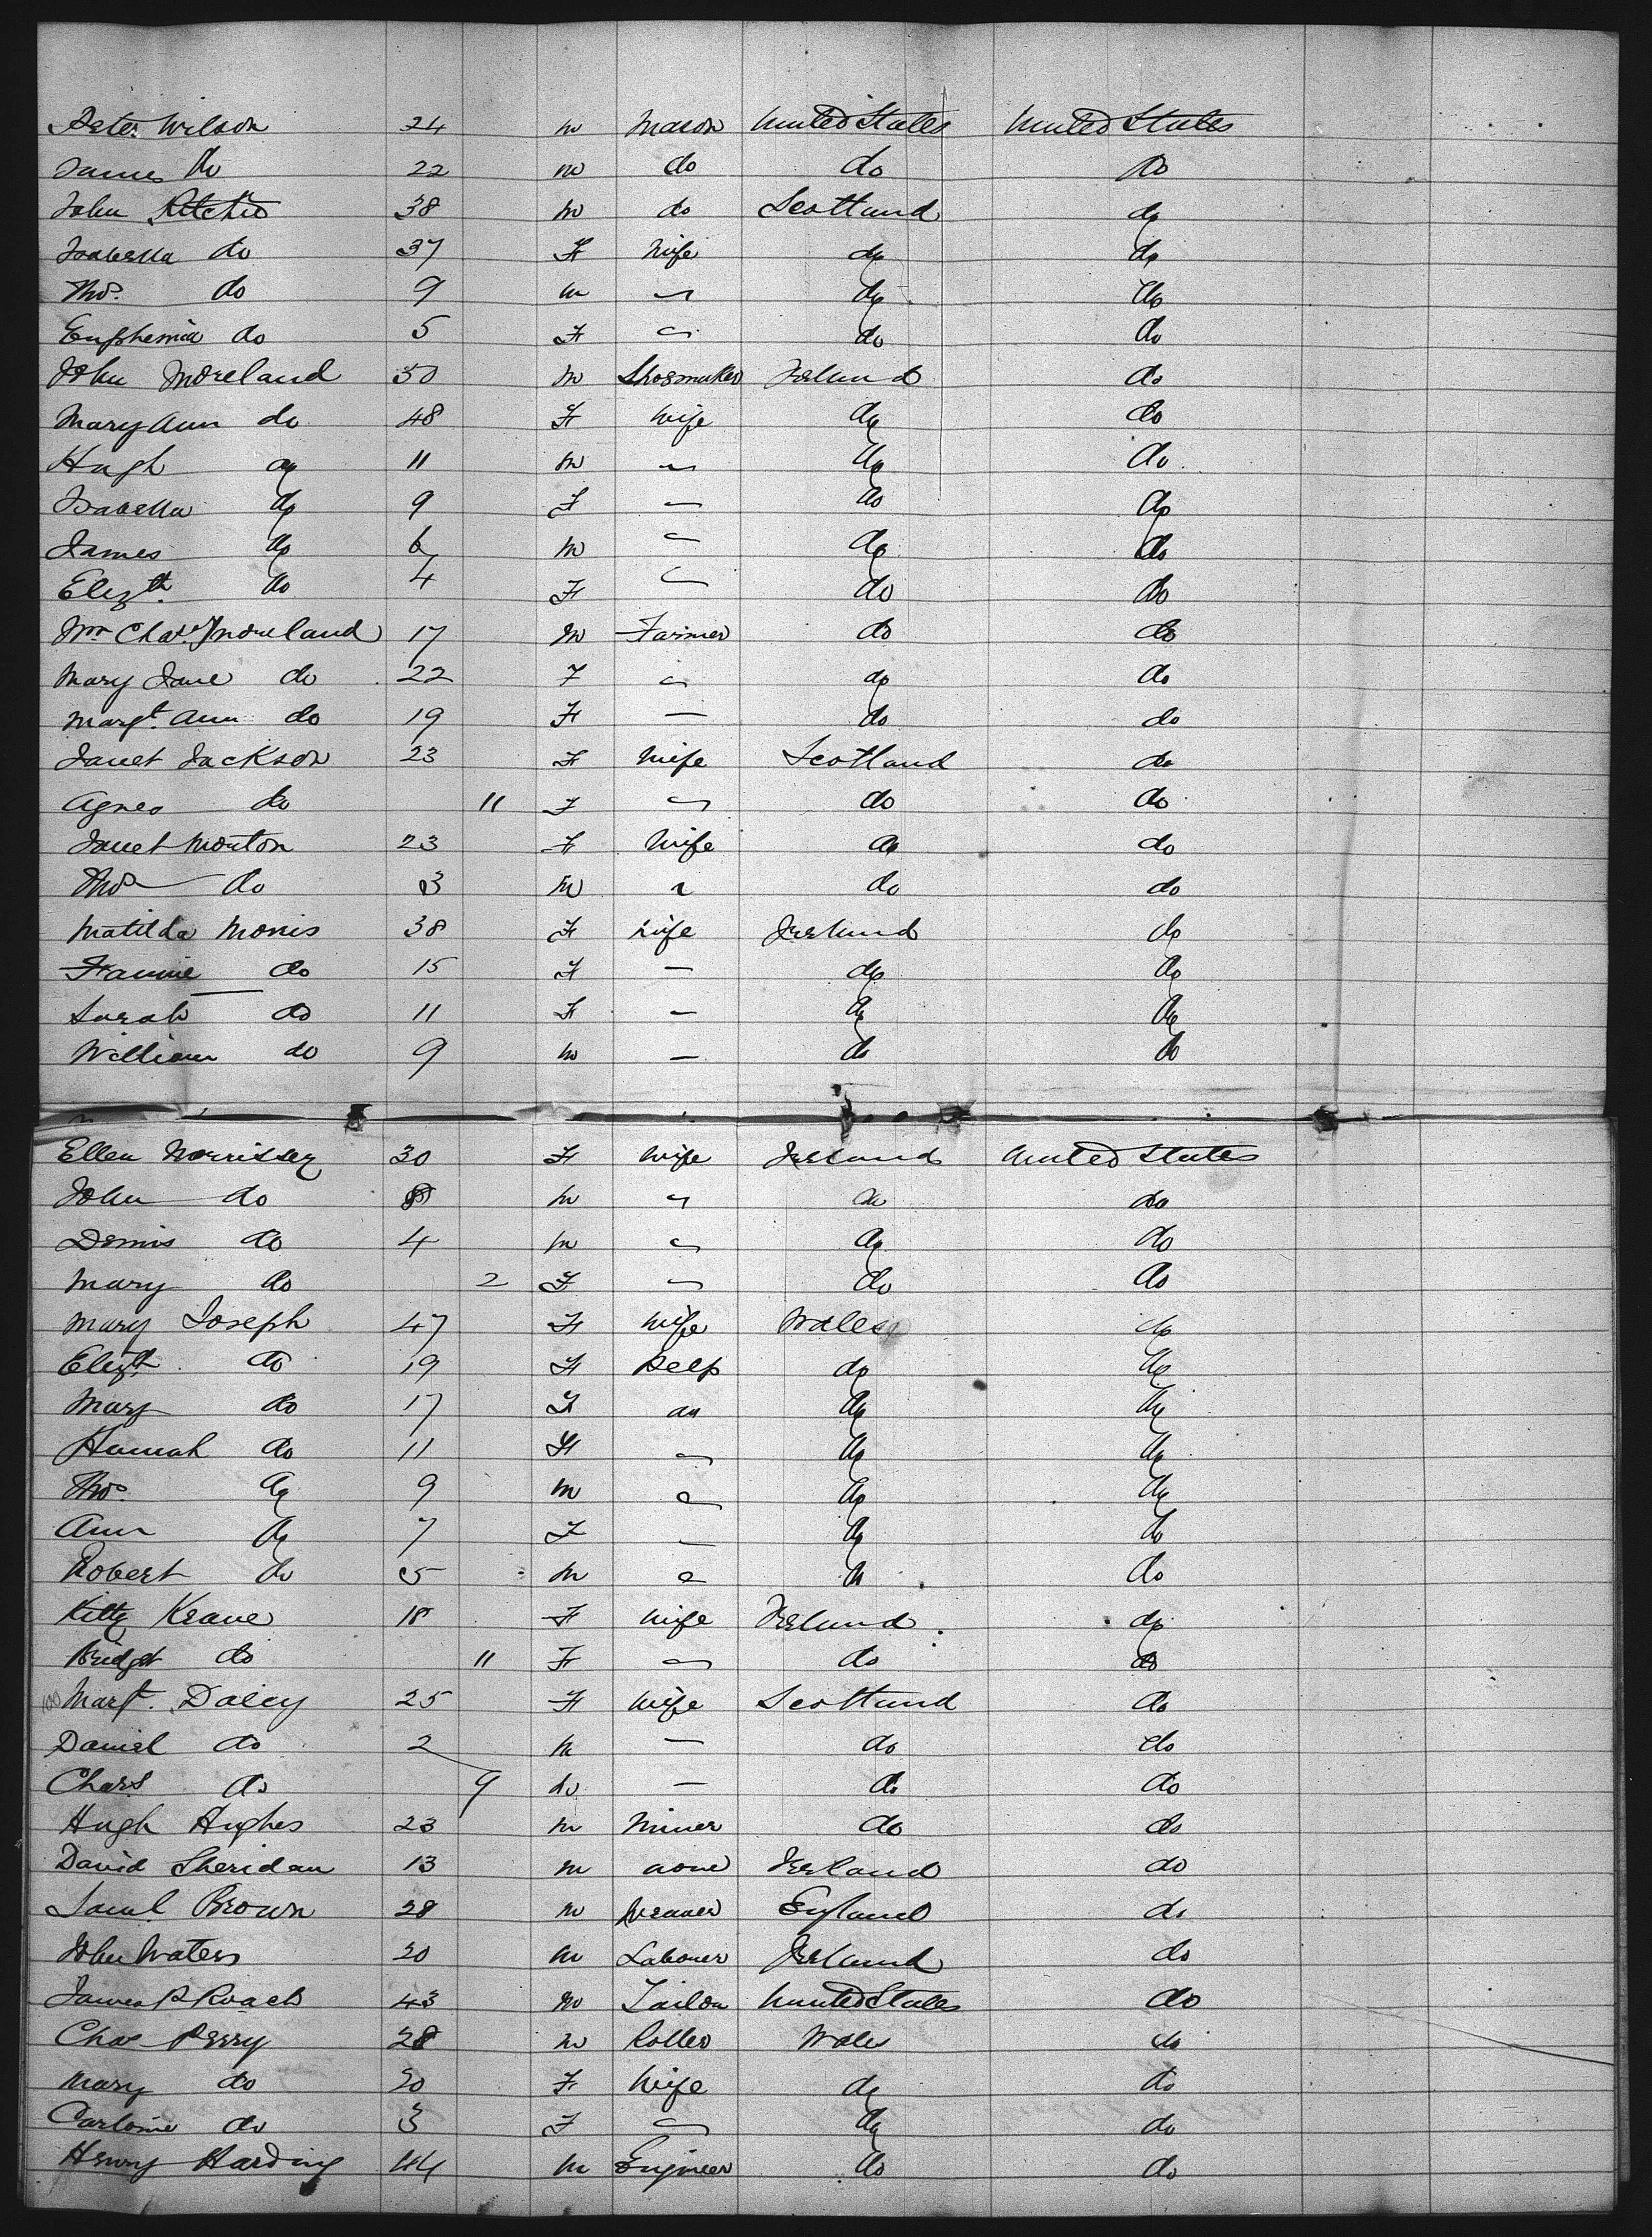 Peter Wilson 24 m Mason United States United States
James do 22 m do do do
John Ritchie 38 m do Scotland do
Isabella do 37 F Wife do do
Thos. do 9 m do do
Euphemia do 5 F do do
John Moreland 50 m Shoemaker Ireland do
Mary Ann do 48 F Wife do do
Hugh do 11 m do do
Isabella do 9 F — do do
James do 6 m do do
Elizth. do 4 F do do
Wm Chas Moreland 17 m Farmer do do
Mary Jane do 22 F do do
Margt. Ann do 19 F — do do
Janet Jackson 23 F Wife Scotland do
Agnes do 11 F do do
Janet Morton 23 F Wife do do
Thos do 3 m do do
Matilda Morris 38 F Wife Ireland do
Fannie do 15 F — do do
Sarah do 11 F — do do
William do 9 m — do do
Ellen Morrissey 30 F Wife Ireland United States
John do 8 m do do
Dennis do 4 m do do
Mary do 2 F do do
Mary Joseph 47 F Wife Wales do
Elizth. do 19 F Help do do
Mary do 17 F do do do
Hannah do 11 F do do
Thos. do 9 m do do
Ann do 7 F do do
Robert do 5 m do do
Kitty Keane 18 F Wife Ireland do
Bridget do 11 F do do
Margt. Daley 25 F Wife Scotland do
Daniel do 2 m — do do
Chars do 9 m — do do
Hugh Hughes 23 m Miner do do
David Sheridan 13 m none Ireland do
Saml. Brown 28 m Weaver England do
John Waters 20 m Labourer Ireland do
James P Roach 43 m Tailor United States do
Chas Perry 28 m Roller Wales do
Mary do 20 F Wife do do
Carloine do 3 F do do
Henry Harding 44 m Engineer do do